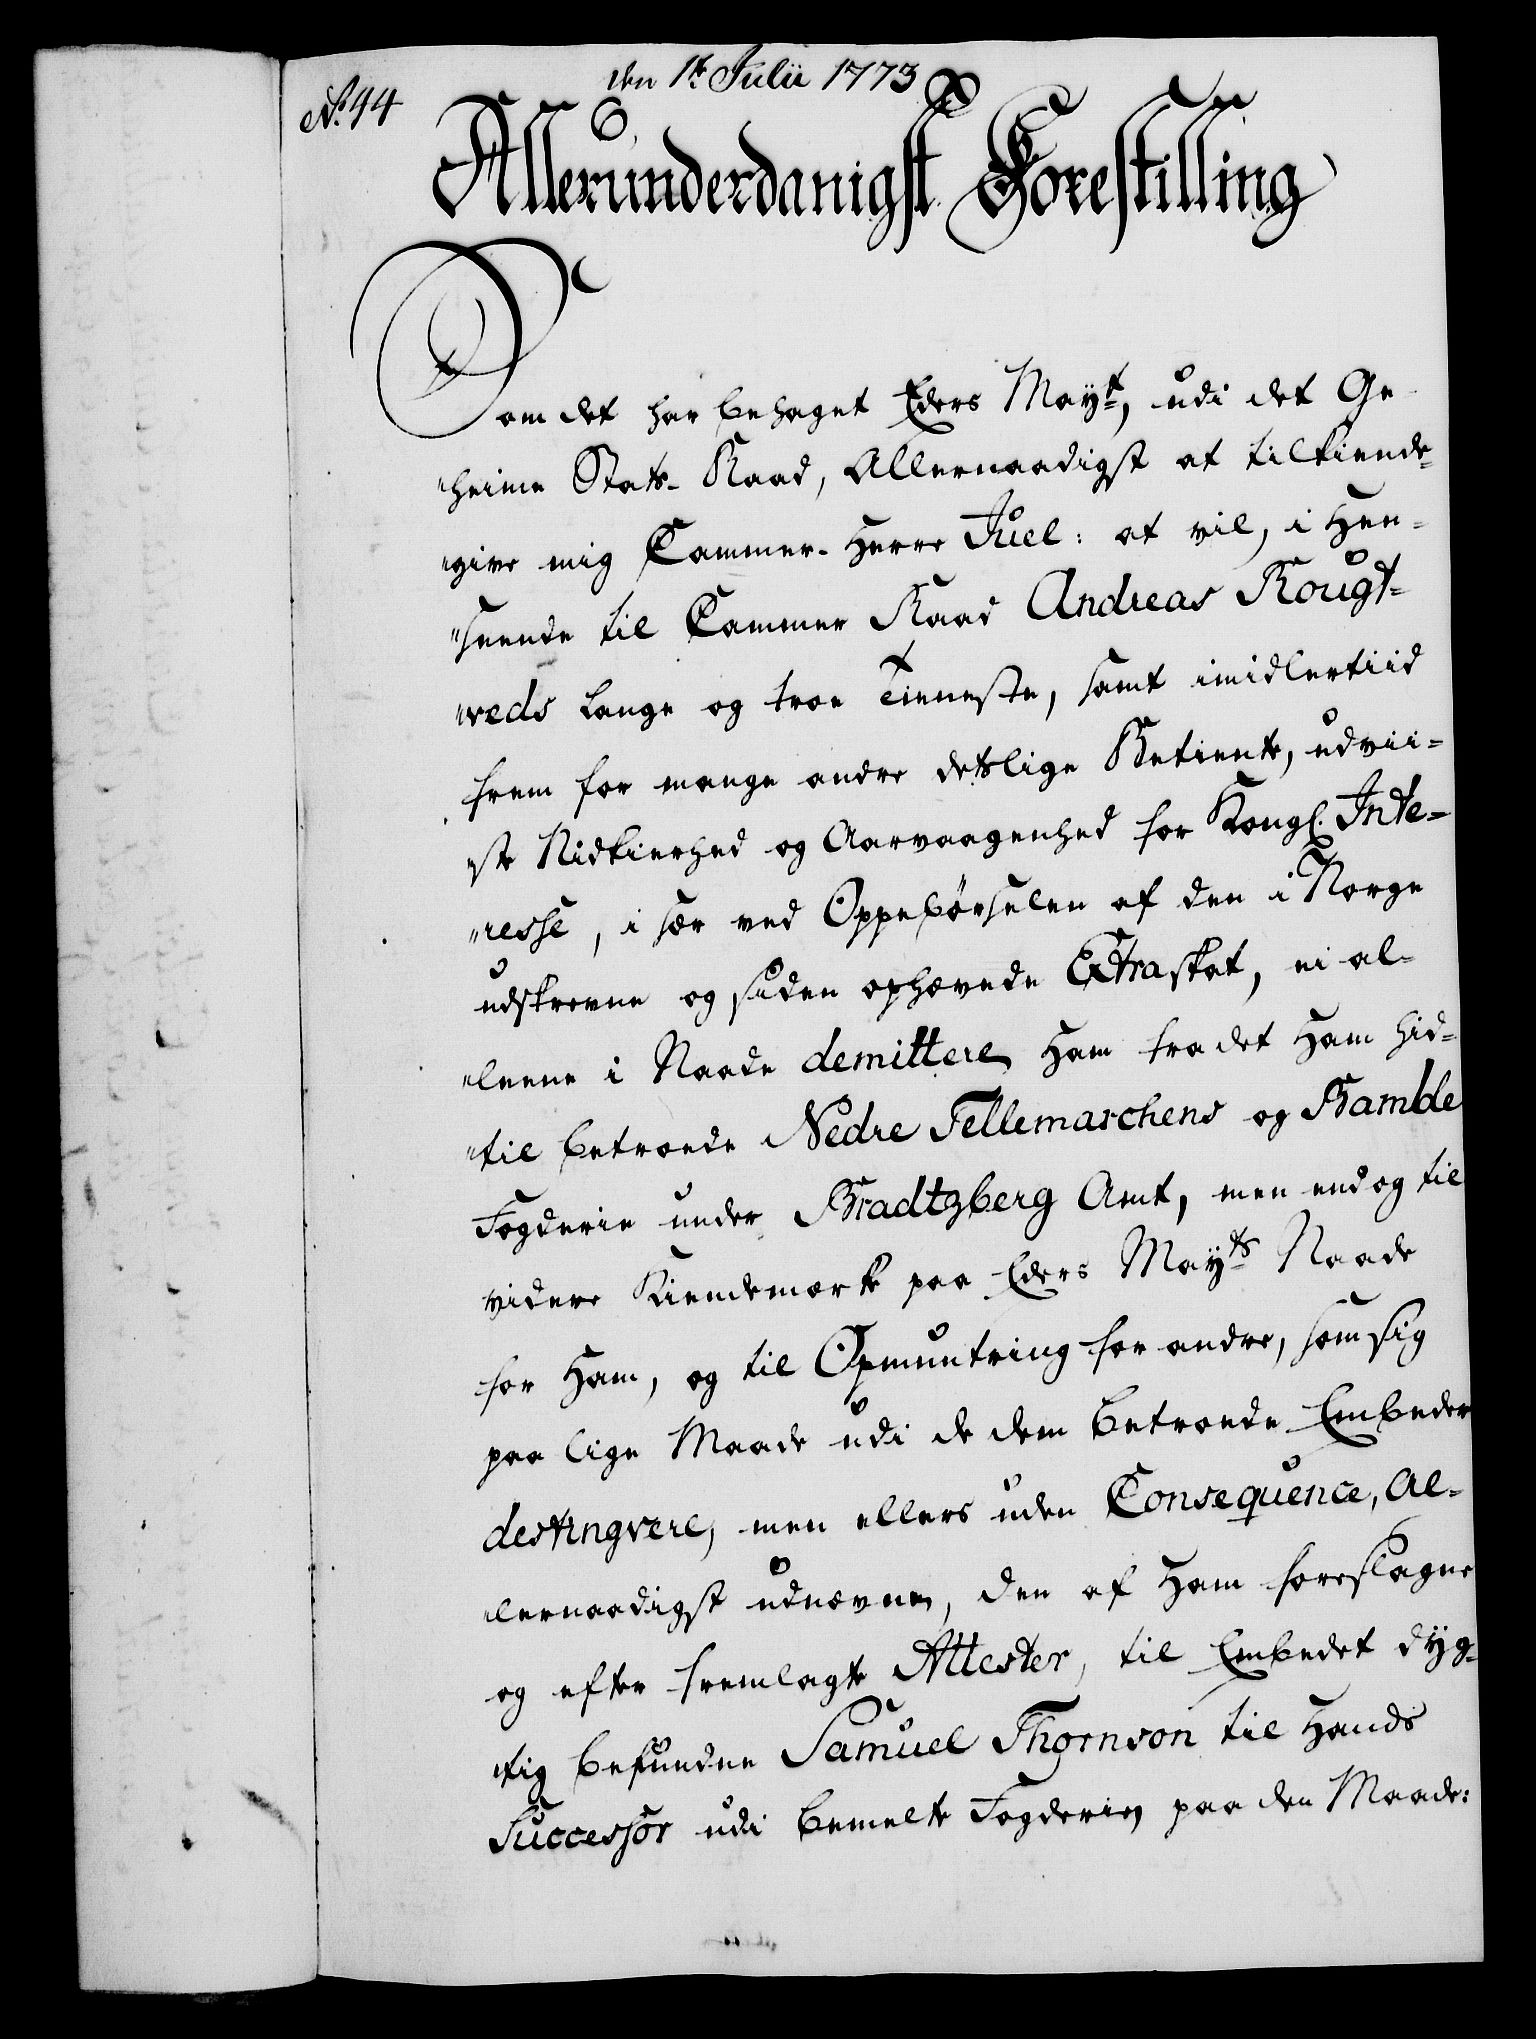 den 1t Julii 1773
No 44
Allerunderdanigst Forestilling
Som det har behaget Eders Mayt, udi det Ge
"heime Stats-Raad, Allernaadigst at tilkiende-
"give mig Cammer-Herre Juel: at vil, i Hen-
"seende til Cammer Raad Andreas Rougt-
"veds lange og troe Tieneste, samt imidlertiid
frem for mange andre detslige Betiente, udvii-
ste Nidkierhed og Aarvaagenhed for Kongl. Inte-
"resse, i sær ved Oppebørselen af den i Norge
udskrevne og siden ophævede Extraskat, ei al-
"leene i Naade demittere Ham fra det Ham hid-
"til betroede Nedre Tellemarchens og Bamble
Fogderie under Bradtzberg Amt, men endog til
videre Kiendemærke paa Eders Mayts Naade
for Ham, og til Opmuntring for andre, som sig
paa lige Maade udi de dem betroede Embeder
destingvere, men ellers uden Consequence, Al-
lernaadigst udnævne, den af Ham foreslagne
og efter fremlagte Attester, til Embedet dyg-
tig befundne Samuel Thornson til Hands
Successor udi bemelte Fogderie paa den Maade: